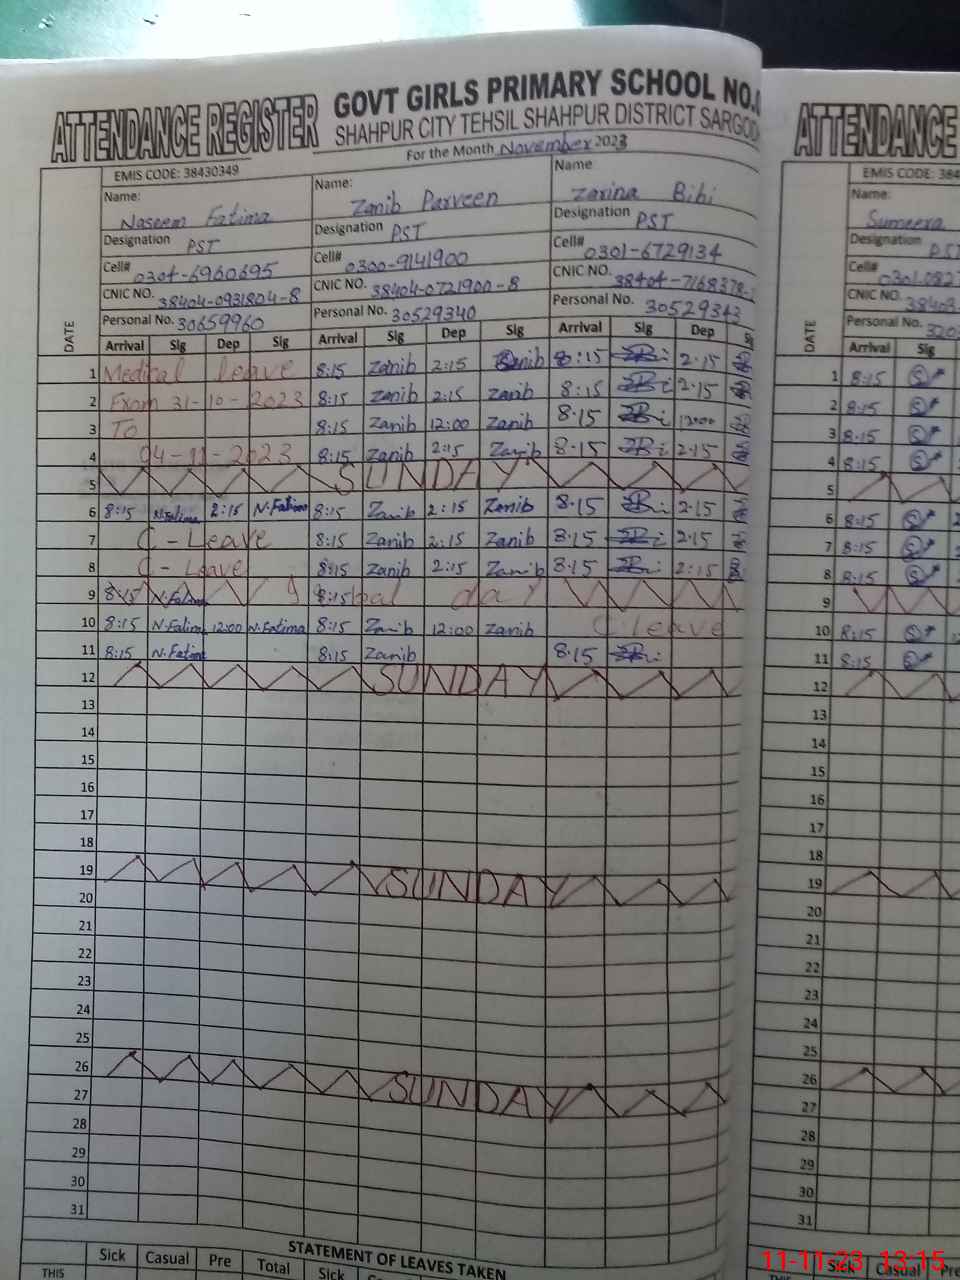 ATTENDANCE REGISTER GOVT GIRLS PRIMARY SCHOOL NO.
SHAHPUR CITY TEHSIL SHAHPUR DISTRICT
For the Month November 2023
EMIS CODE: 38430349
Name: Name: Name
Naseem Fatima Zanib Parveen Zarina Bibi
Designation PST Designation PST Designation PST
Cell# 0304-6960695 Cell# 0300-9141900 Cell# 0301-6729134
CNIC NO. 38404-0931804-8 CNIC NO. 38404-0721900-8 CNIC NO. 38404-7168378-
Personal No. 30659960 Personal No. 30529340 30529343
DATE Arrival Sig Dep Sig Arrival Sig Dep Sig Arrival Sig Dep
1 Medical leave 8:15 Zanib 2:15 Zanib 8:15 2.15
2 From 31-10-2023 8:15 Zanib 2:15 Zanib 8:15 2.15
3 To 8:15 Zanib 12:00 Zanib 8.15 12:00
4 04-11-2023 8:15 Zanib 2:15 Zanib 8.15 2.15
5 SUNDAY
6 8:15 N.Fatima 2:15 N.Fatima 8:15 Zanib 2:15 Zanib 8.15 2.15
7 C-Leave 8:15 Zanib 2:15 Zanib 8.15 2.15
8 C-Leave 8:15 Zanib 2:15 Zanib 8.15 2:15
9 8:15 N.Fatima 8:15 day
10 8:15 N.Fatima 12:00 N.Fatima 8:15 Zanib 12:00 Zanib C.leave
11 8:15 N.Fatima 8:15 Zanib 8.15
12 SUNDAY
13
14
15
16
17
18
19 SUNDAY
20
21
22
23
24
25
26 SUNDAY
27
28
29
30
31
STATEMENT OF LEAVES TAKEN
Sick Casual Pre Total Sick
THIS
ATTENDANCE
EMIS CODE:
Name:
Sumeera
Designation
Cell#
CNIC NO.
Personal No.
DATE Arrival Sig
1 8:15
2 8:15
3 8.15
4 8:15
5
6 8:15
7 8:15
8 8:15
9
10 8:15
11 8:15
12
13
14
15
16
17
18
19
20
21
22
23
24
25
26
27
28
29
30
31
Sick Casual Pre
11-11-23 13:15